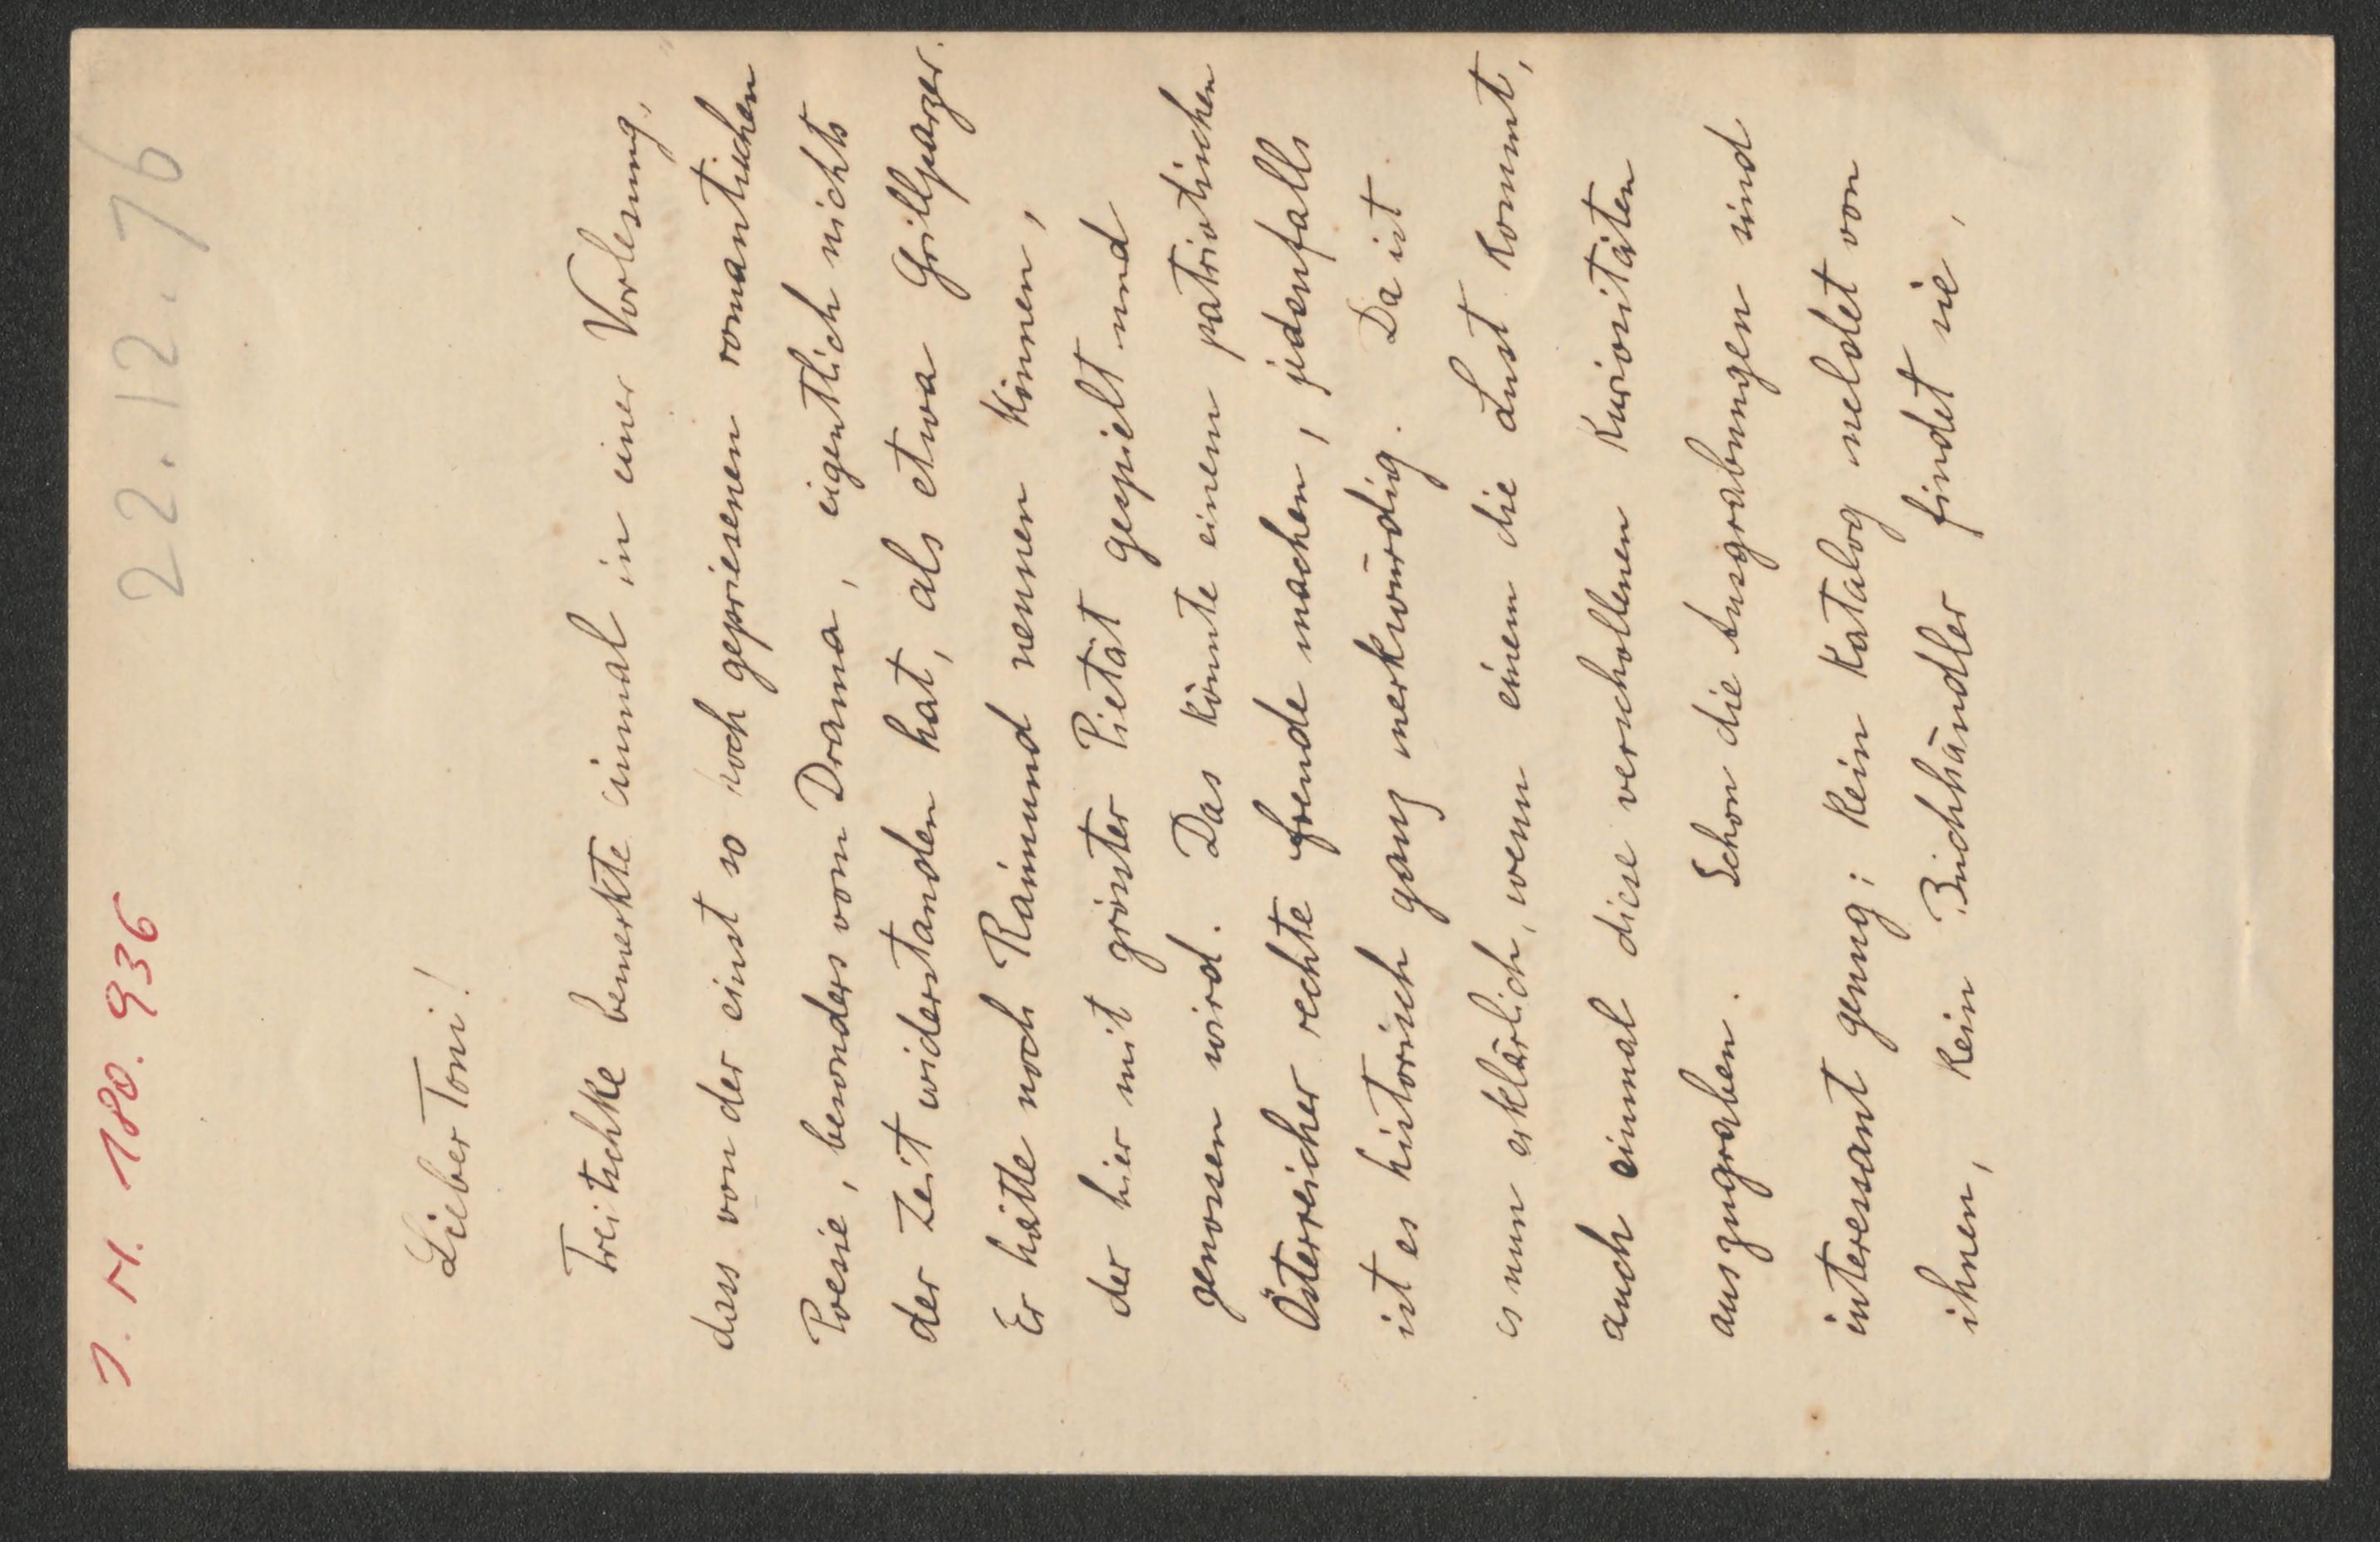 J. N. 180.936
22.12.76
Lieber Toni!
Treitschke bemerkte einmal in einer Vorlesung,
dass von der einst so hoch gepriesenen romantischen
Poesie, besonders vom Drama, eigentlich nichts
der Zeit widerstanden hat, als etwa Grillparzer.
Er hätte noch Raimund nennen können,
der hier mit grösster Pietät gespielt und
genossen wird. Das könnte einem patriotischen
Österreicher rechte Freude machen, jedenfalls
ist es historisch ganz merkwürdig. Da ist
es nun erklärlich, wenn einem die Lust kommt,
auch einmal diese verschollenen Kuriositäten
auszugraben. Schon die Ausgrabungen sind
interessant genug; kein Katalog meldet von
ihnen, kein Buchhändler findet sie,